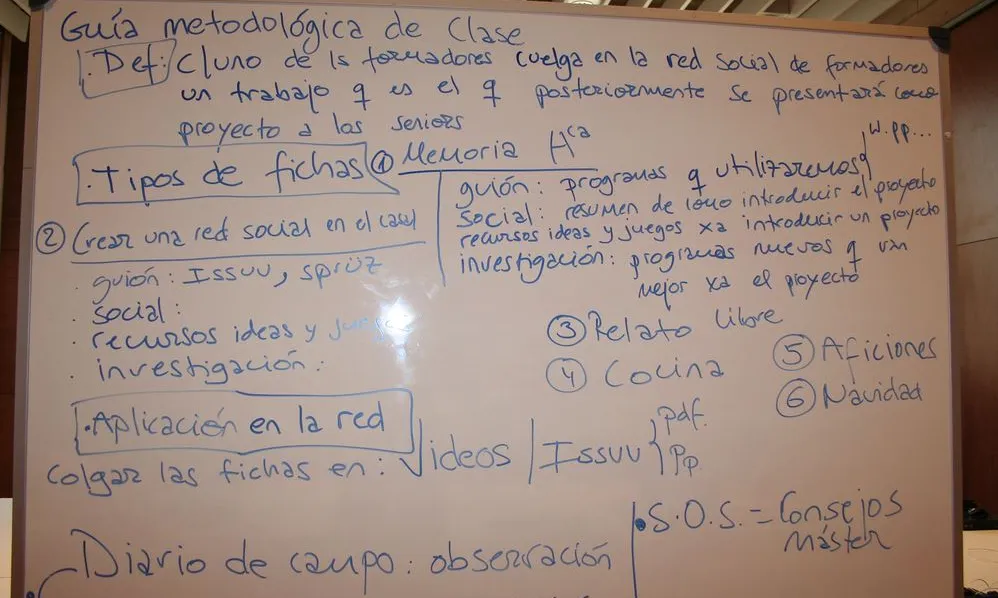 Guía metodológica de Clase
. Def: C/uno de ls formadores cuelga en la red social de formadores
un trabajo q es el q posteriormente se presentará como
proyecto a los seniors
. Tipos de fichas
① Memoria Hca
guión: programas q utilizaremos w. pp...
social: resumen de como introducir el proyecto
recursos ideas y juegos xa introducir un proyecto
investigación: programas nuevos q van
mejor xa el proyecto
② Crear una red social en el
. guión: Issuu, sprüz
. social:
. recursos ideas y juegos
. investigación:
③ Relato libre
④ Cocina
⑤ Aficiones
⑥ Navidad
. Aplicación en la red
Colgar las fichas en: Videos | Issuu { pdf.
Pp.
Diario de campo: observación
• S.O.S. = Consejos
Máster